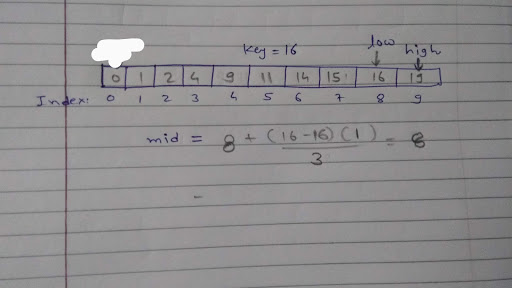 Key = 16 low high
0 1 2 4 9 11 14 15 16 19
Index: 0 1 2 3 4 5 6 7 8 9
mid = 8 + (16-16)(1) / 3 = 8